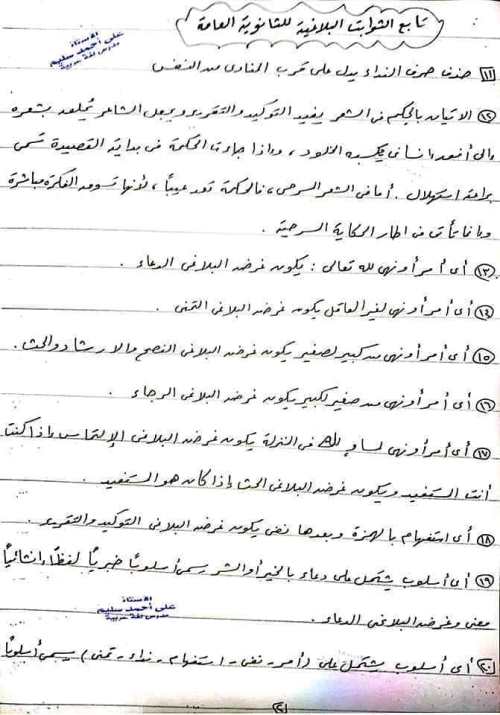 تابع الثوابت البلاغية للثانوية العامة
الأستاذ
على أحمد سليم
مدرس لغة عربية
١١ حذف حرف النداء يدل على قرب المنادى من النفس
١٢ الإتيان بالحكم فى الشعر يفيد التوكيد والتقرير ويجعل الشاعر يُحلّق بشعره
إلى أفق إنسانى يكسبه الخلود، وإذا جاءت الحكمة فى بداية القصيدة تسمى
براعة استهلال. أما فى الشعر المسرحى، فالحكمة تعد عيباً، لأنها تسوق الفكرة مباشرة
وإنما تأتى فى إطار الحكاية المسرحية.
١٣ أى أمر أو نهى لله تعالى: يكون غرضه البلاغى الدعاء.
١٤ أى أمر أو نهى لغير العاقل يكون غرضه البلاغى التمنى.
١٥ أى أمر أو نهى من كبير لصغير يكون غرضه البلاغى النصح والإرشاد والحث.
١٦ أى أمر أو نهى من صغير لكبير يكون غرضه البلاغى الرجاء.
١٧ أى أمر أو نهى لمساوٍ لك فى المنزلة يكون غرضه البلاغى الإلتماس إذا كنت
أنت المستفيد ويكون غرضه البلاغى الحث إذا كان هو المستفيد.
١٨ أى استفهام بالهمزة وبعدها نفى يكون غرضه البلاغى التوكيد والتقرير.
١٩ أى أسلوب يشتمل على دعاء بالخير أو الشر يسمى أسلوبًا خبريًا لفظًا إنشائيًا
معنى وغرضه البلاغى الدعاء.
الأستاذ
على أحمد سليم
مدرس لغة عربية
٢٠ أى أسلوب يشتمل على (أمر - نهى - استفهام - نداء - تمنى) يسمى أسلوبًا